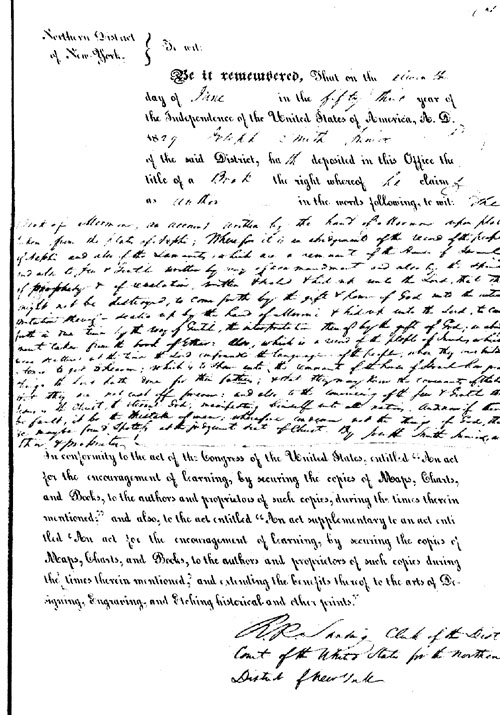 Northern District
of New-York.
To wit:
Be it remembered, That on the eleventh
day of June in the fifty third year of
the Independence of the United States of America, A. D.
1829 Joseph Smith Junior
of the said District, hath deposited in this Office the
title of a Book the right whereof he claims
as author in the words following, to wit: The
Book of Mormon, an account written by the hand of Mormon upon plates
taken from the plates of Nephi; Wherefore it is an abridgment of the record of the people
of Nephi and also of the Lamanites, which are a remnant of the House of Israel
and also to Jew & Gentile written by way of commandment and also by the spirit
of prophesy & of revelation, written & sealed & hid up unto the Lord, that they
might not be destroyed, to come forth by the gift & power of God unto the
interpretation thereof sealed up by the hand of Moroni & hid up unto the Lord, to come
forth in due time by the way of Gentile, the interpretation thereof by the gift of God, an
taken from the book of Ether. Also, which is a record of the people of Jared, which
were scattered at the time the Lord confounded the language of the people, when they were building
a tower to get to Heaven; which is to shew unto the remnant of the house of Israel
things the Lord hath done for their fathers; & that they may know the covenants of the
that they are not cast off forever: and also to the convincing of the Jew & Gentile that
Jesus is the Christ, the eternal God, manifesting himself unto all nations. And now if there
be fault, it be the mistake of men; wherefore condemn not the things of God, that
ye may be found spotless at the judgment seat of Christ. By Joseph Smith Junior,
Author & proprietor
In conformity to the act of the Congress of the United States, entitled "An act
for the encouragement of learning, by securing the copies of Maps, Charts,
and Books, to the authors and proprietors of such copies, during the times therein
mentioned;" and also, to the act entitled "An act supplementary to an act enti
tled 'An act for the encouragement of learning, by securing the copies of
Maps, Charts, and Books, to the authors and proprietors of such copies during
the times therein mentioned,' and extending the benefits thereof to the arts of De-
signing, Engraving, and Etching historical and other prints."
R R Lansing Clerk of the Dist
Court of the United States for the Northern
District of New York